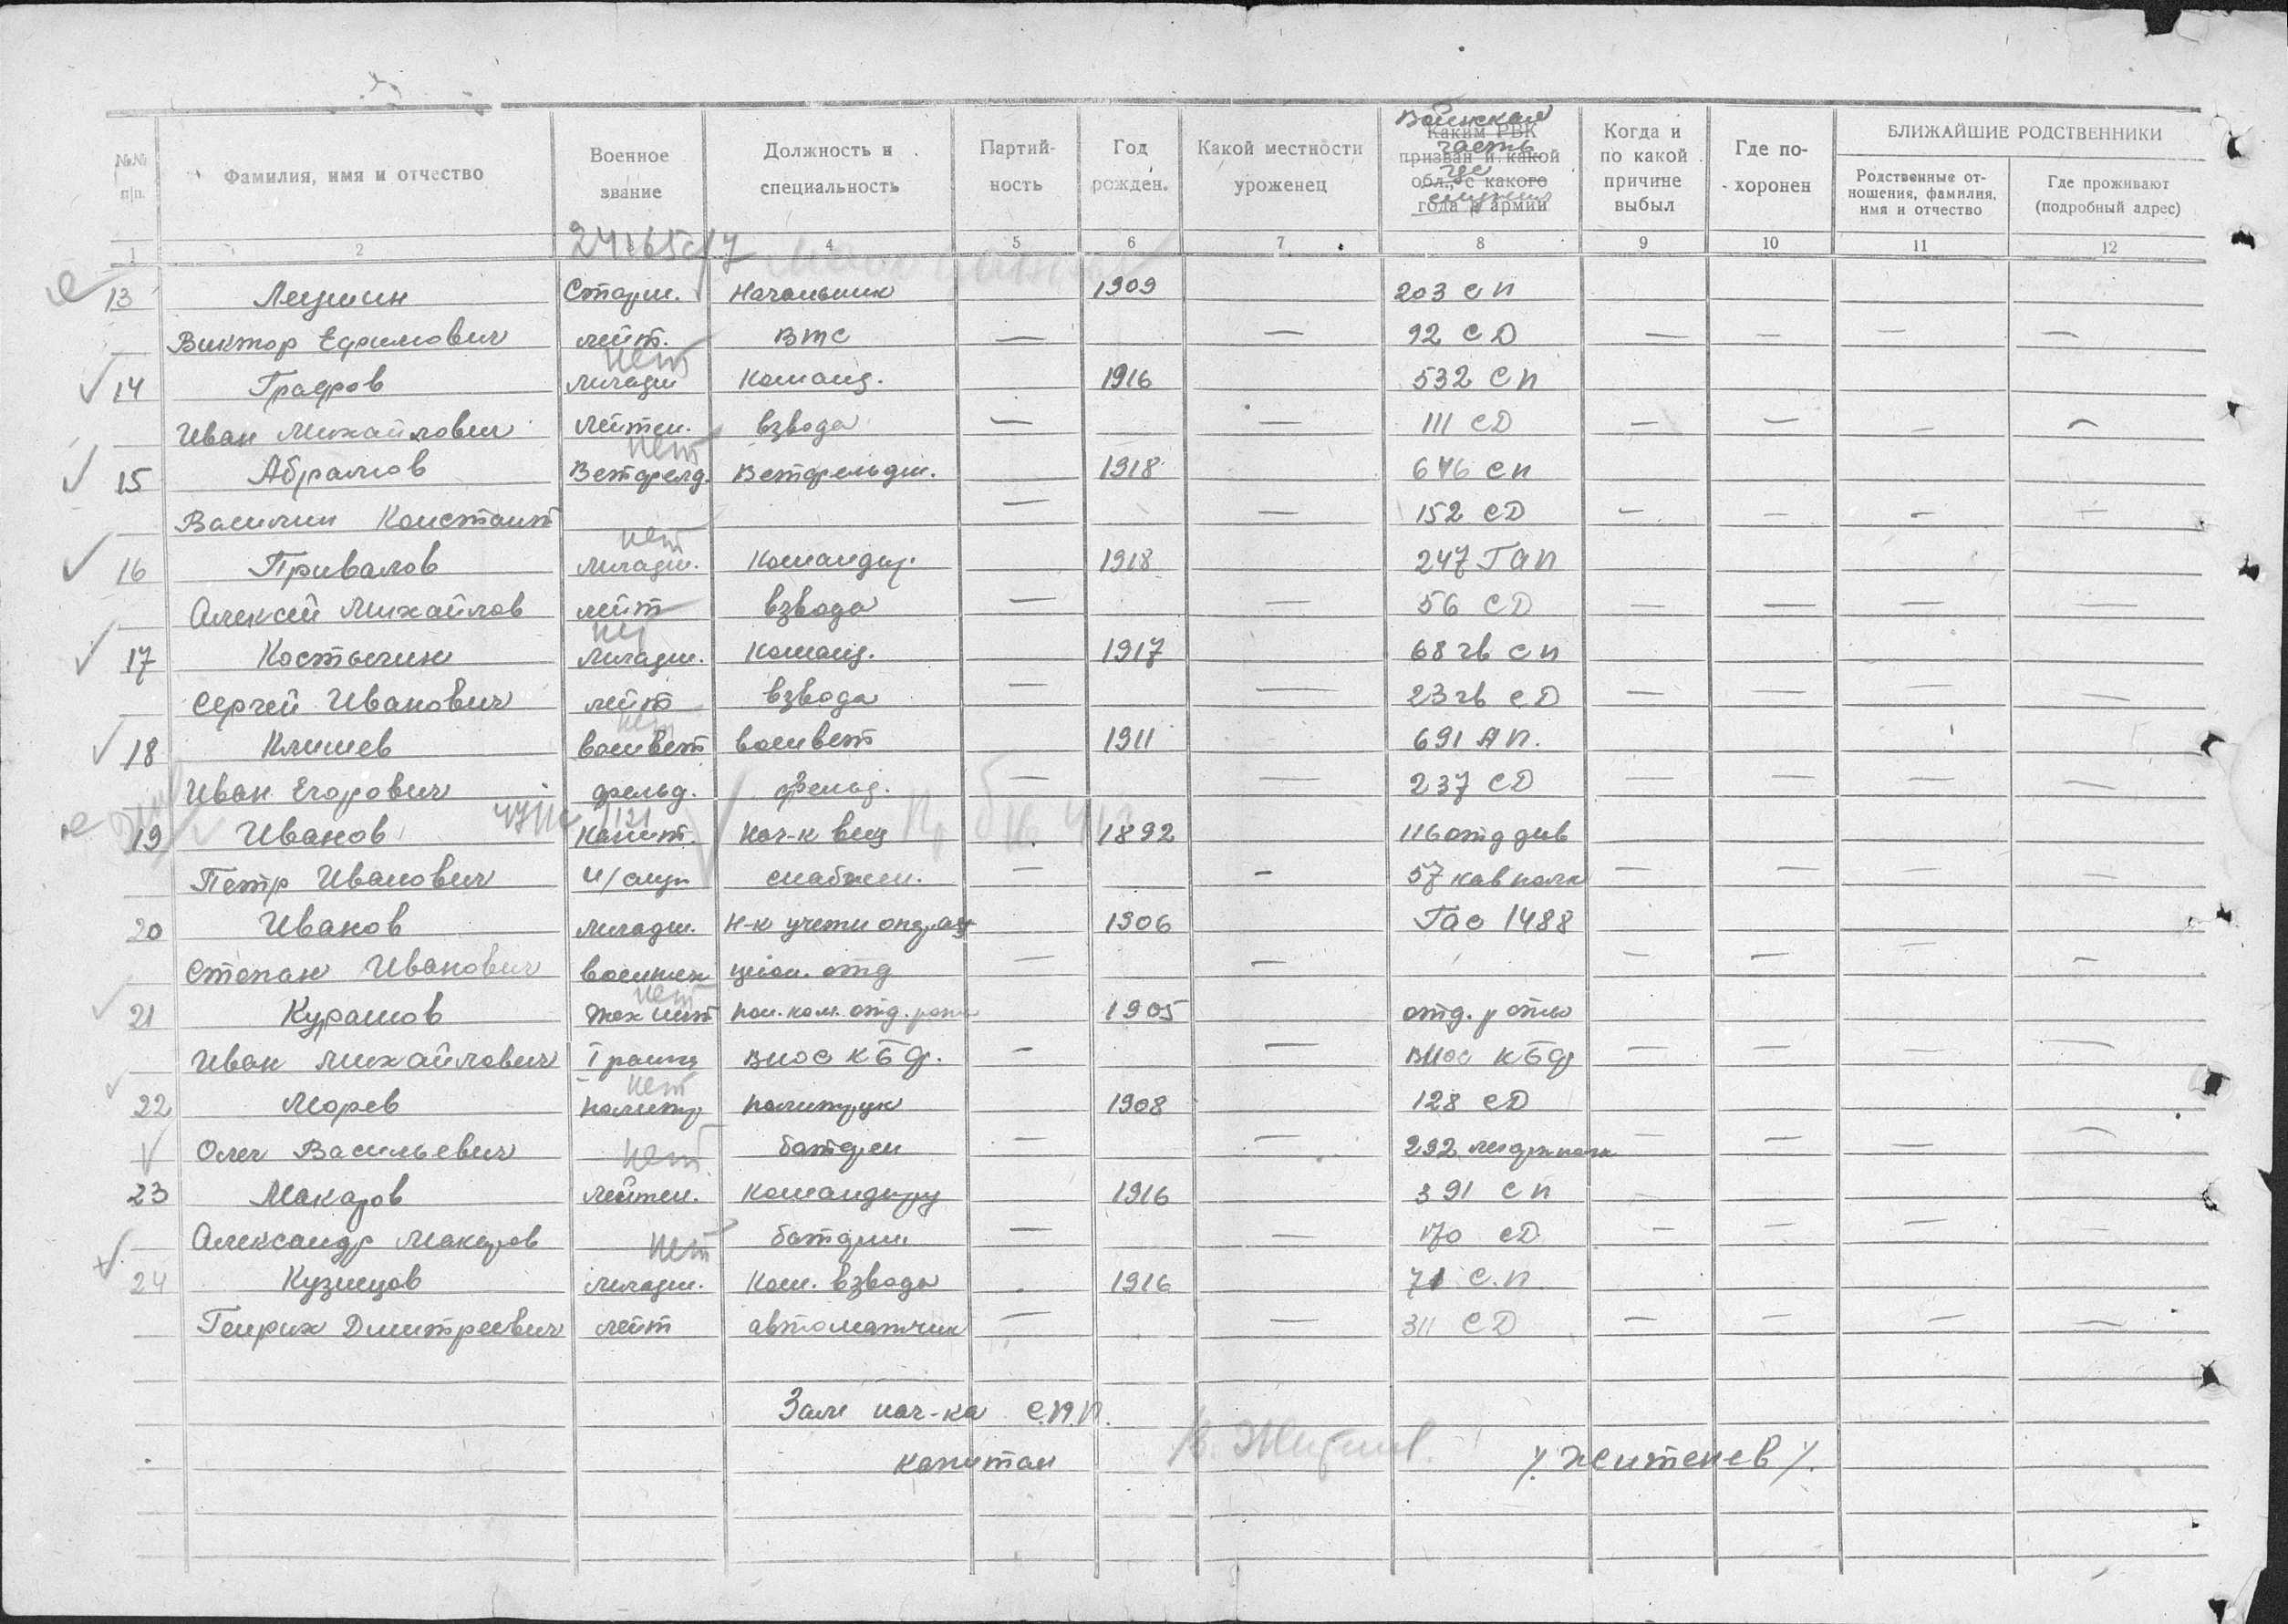 №№ п/п. | Фамилия, имя и отчество | Военное звание | Должность и специальность | Партий-ность | Год рожден. | Какой местности уроженец | Каким РВК призван и какой обл., с какого года в армии | Когда и по какой причине выбыл | Где по-хоронен | БЛИЖАЙШИЕ РОДСТВЕННИКИ
Воинская часть где служил
Родственные от-ношения, фамилия, имя и отчество | Где проживают (подробный адрес)
1 2 4 5 6 7 8 9 10 11 12
13 Лецшин Старш. Начальник 1909 203 СП
Виктор Ефимович лейт. ВТС — — 92 СД — — — —
нет
14 Графов младш Команд. 1916 532 СП
Иван Михайлович лейтен. взвода — — 111 СД — — — —
нет
15 Абрамов Ветфелд. Ветфельдш. 1918 646 СП
Василий Констант — — 152 СД — — — —
нет
16 Привалов младш. Командир. 1918 247 ГАП
Алексей Михайлов лейт взвода — — 56 СД — — — —
17 Костычин младш. Команд. 1917 68 гв СП
Сергей Иванович лейт взвода — — 23 гв СД — — — —
нет
18 Климев военвет военвет 1911 691 АП.
Иван Егорович фельд. фельд. — — 237 СД — — — —
19 Иванов Капит. Нач-к вещ 1892 116 отд див
Петр Иванович И/служ снабжен. — — 57 кав полк — — — —
20 Иванов младш. Н-к учетн операц 1906 ГАО 1488
Степан Иванович воентех цион. отд — — — — — —
нет
21 Курашов Тех инт пом. ком. отд. роты 1905 отд. роты
Иван Михайлович I ранга ВНОС КБФ. — — ВНОС КБФ — — — —
нет
22 Морев политр политрук 1908 128 СД
Олег Васильевич батареи — — 292 — — — —
нет
23 Макаров лейтен. командир 1916 391 СП
Александр Макаров батареи — — 170 СД — — — —
нет
24 Кузнецов младш. Ком. взвода 1916 71 С.П.
Генрих Дмитриевич лейт автоматчик — — 311 СД — — — —
Зам нач-ка С.П.П.
капитан /Житенев/.